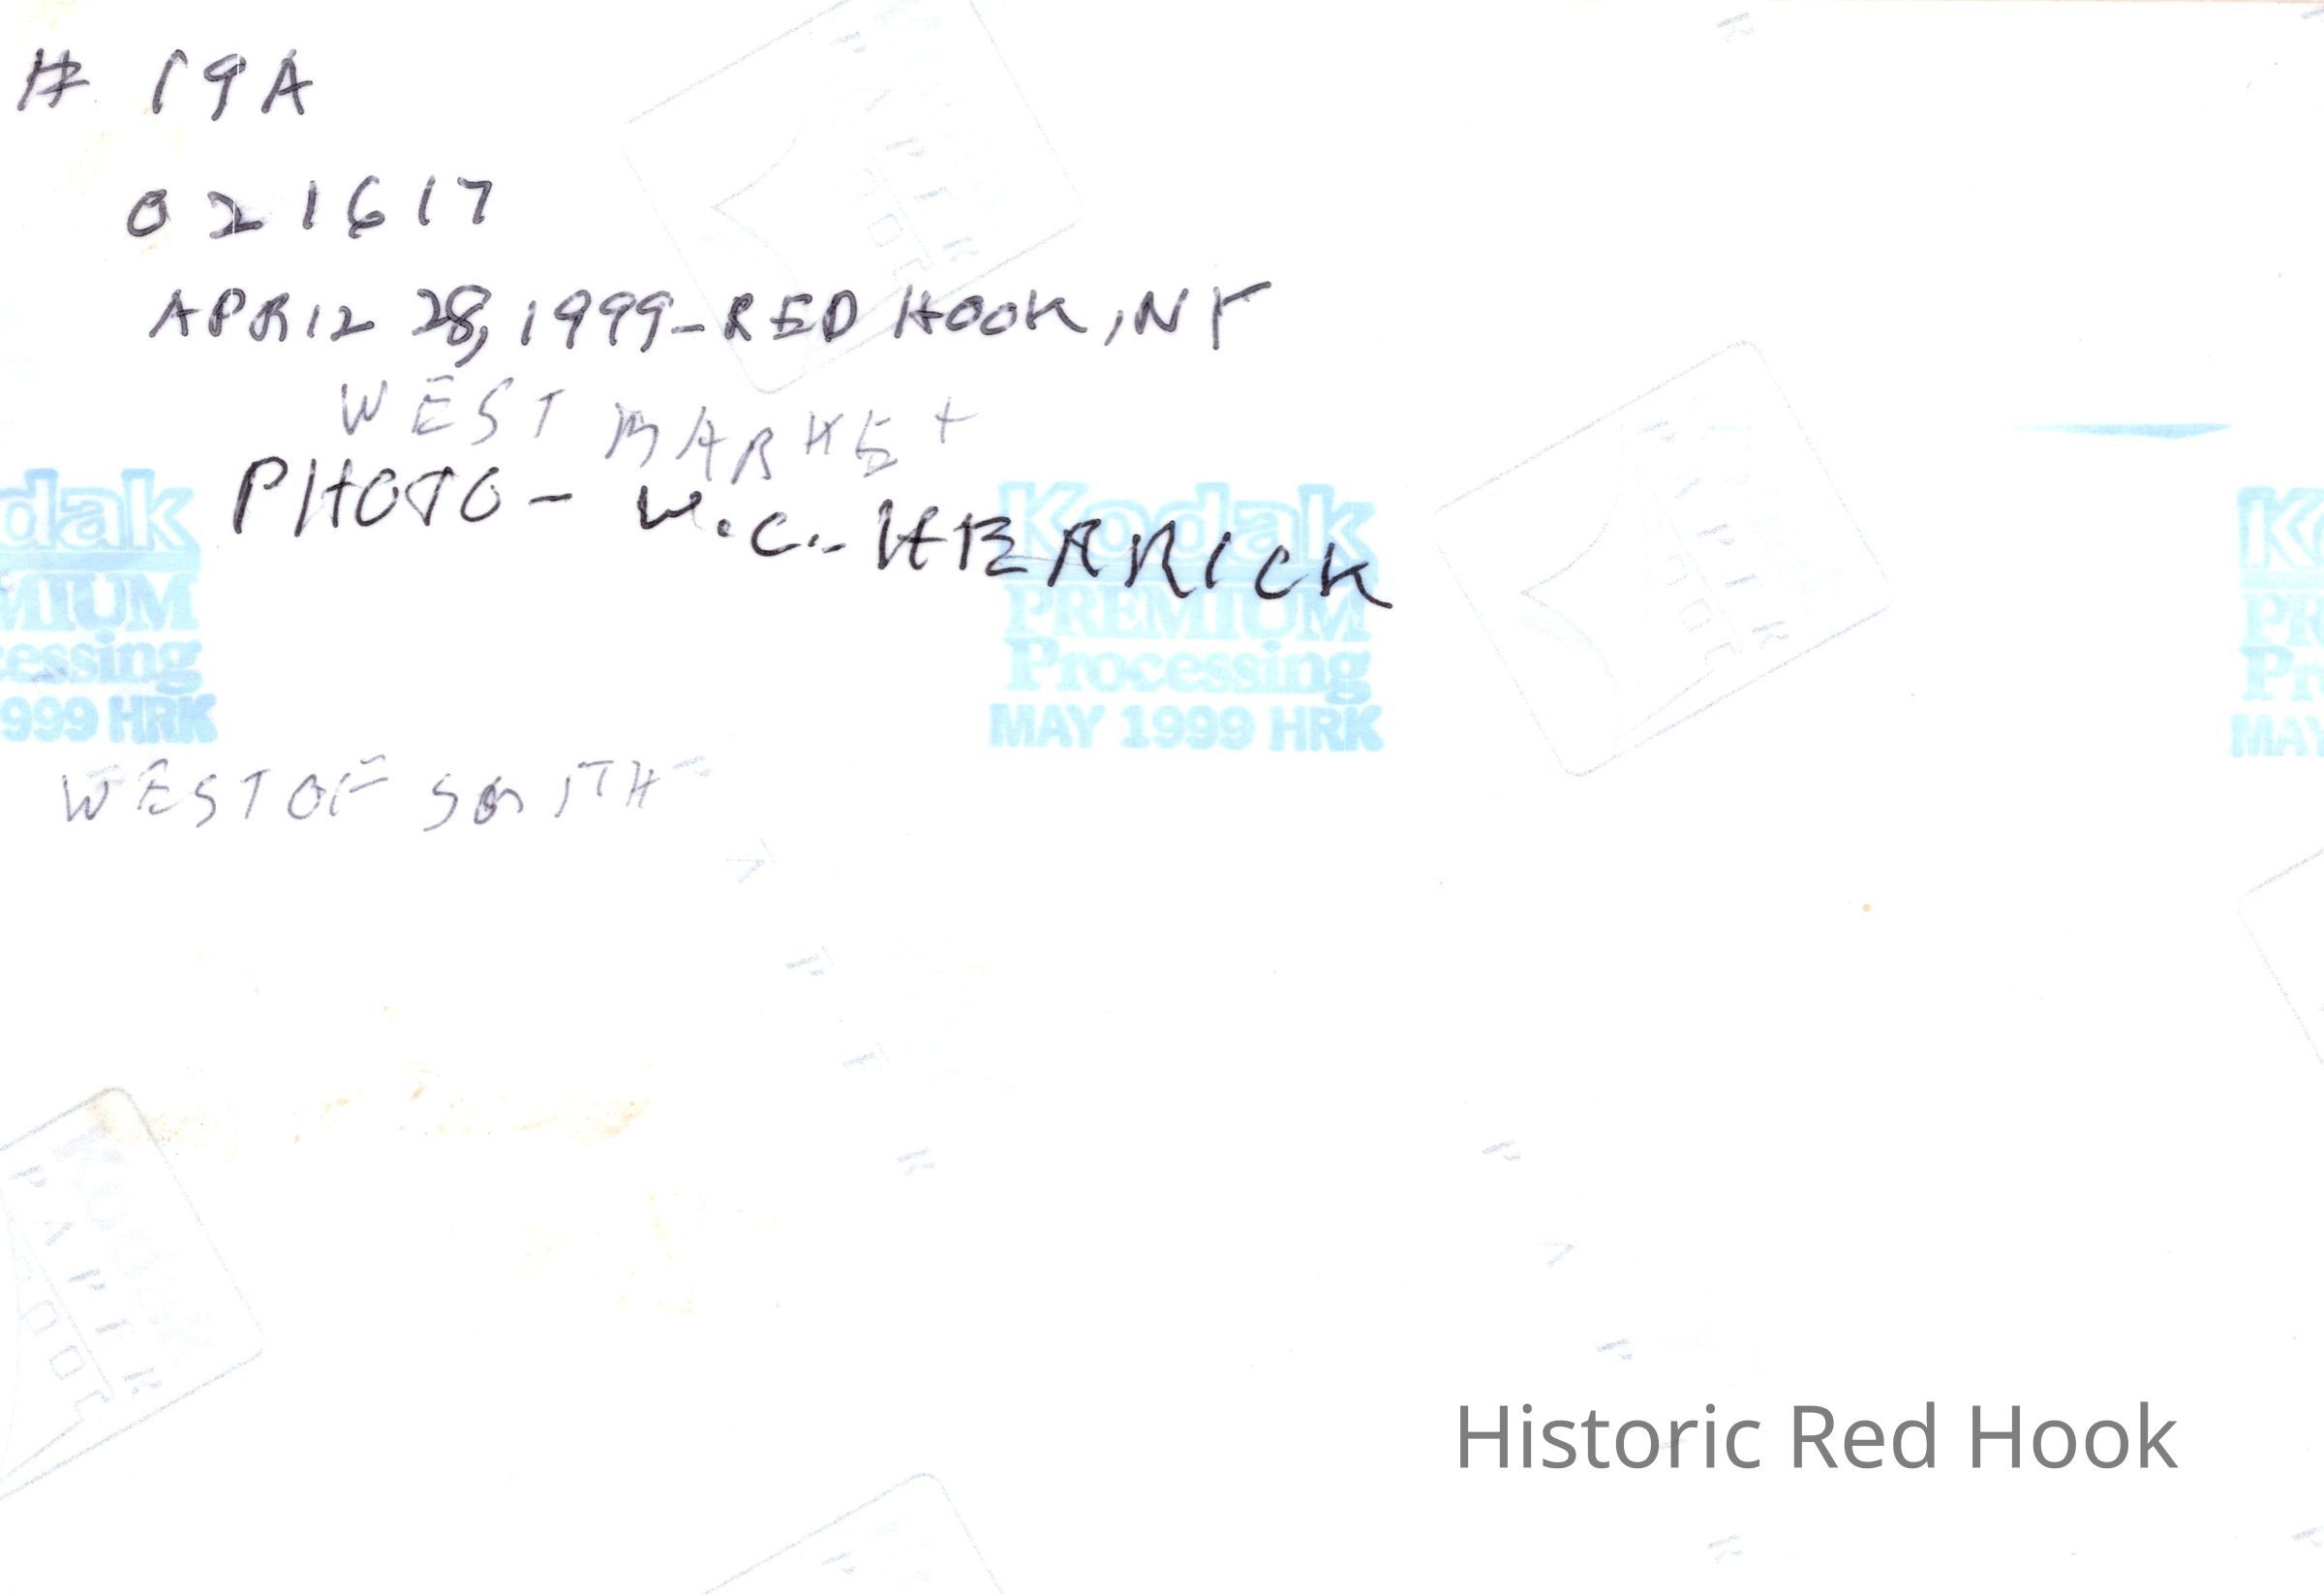 # 19A
021617
APRIL 28, 1999 - RED HOOK, NY
WEST MARKET
PHOTO - W.C. HERRICK
dak
MIUM
cessing
999 HRK
Kodak
PREMIUM
Processing
MAY 1999 HRK
KO
PR
Pr
MAY
WEST OF SMITH
Historic Red Hook